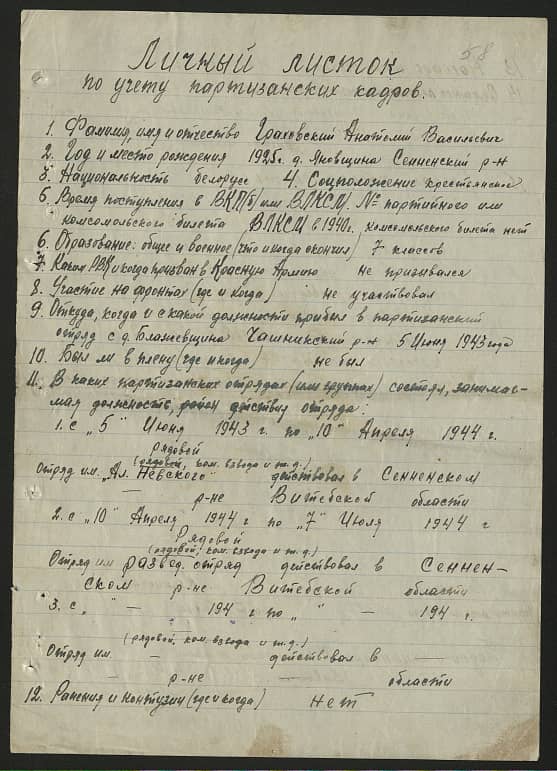 58
Личный листок
по учету партизанских кадров.
1. Фамилия, имя и отчество Граховский Анатолий Васильевич
2. Год и место рождения 1925 г. д. Яновщина Сенненский р-н
3. Национальность белорус 4. Соцположение крестьянское
5. Время поступления в ВКП(б) или ВЛКСМ, № партийного или
комсомольского билета ВЛКСМ в 1940г. комсомольского билета нет
6. Образование: общее и военное (что и когда окончил) 7 классов
7. Каким РВК и когда призван в Красную Армию не призывался
8. Участие на фронтах (где и когда) не участвовал
9. Откуда, когда и с какой должности прибыл в партизанский
отряд с д. Блажевщина Чашникский р-н 5 Июня 1943 года
10. Был ли в плену (где и когда) не был
11. В каких партизанских отрядах (или группах) состоял, занимае-
мая должность, район действия отряда:
1. с "5" Июня 1943 г. по "10" Апреля 1944 г.
рядовой
(рядовой, ком. взвода и т.д.)
Отряд им. "Ал. Невского" действовал в Сенненском
р-не Витебской области
2. с "10" Апреля 1944 г по "7" Июля 1944 г
Рядовой
(рядовой, ком. взвода и т.д.)
Отряд им развед. отряд действовал в Сеннен-
ском р-не Витебской области
3. с " " — 194 г по " " — 194 г.
(рядовой, ком. взвода и т.д.)
Отряд им. — действовал в —
— р-не — области
12. Ранения и контузии (где и когда) нет